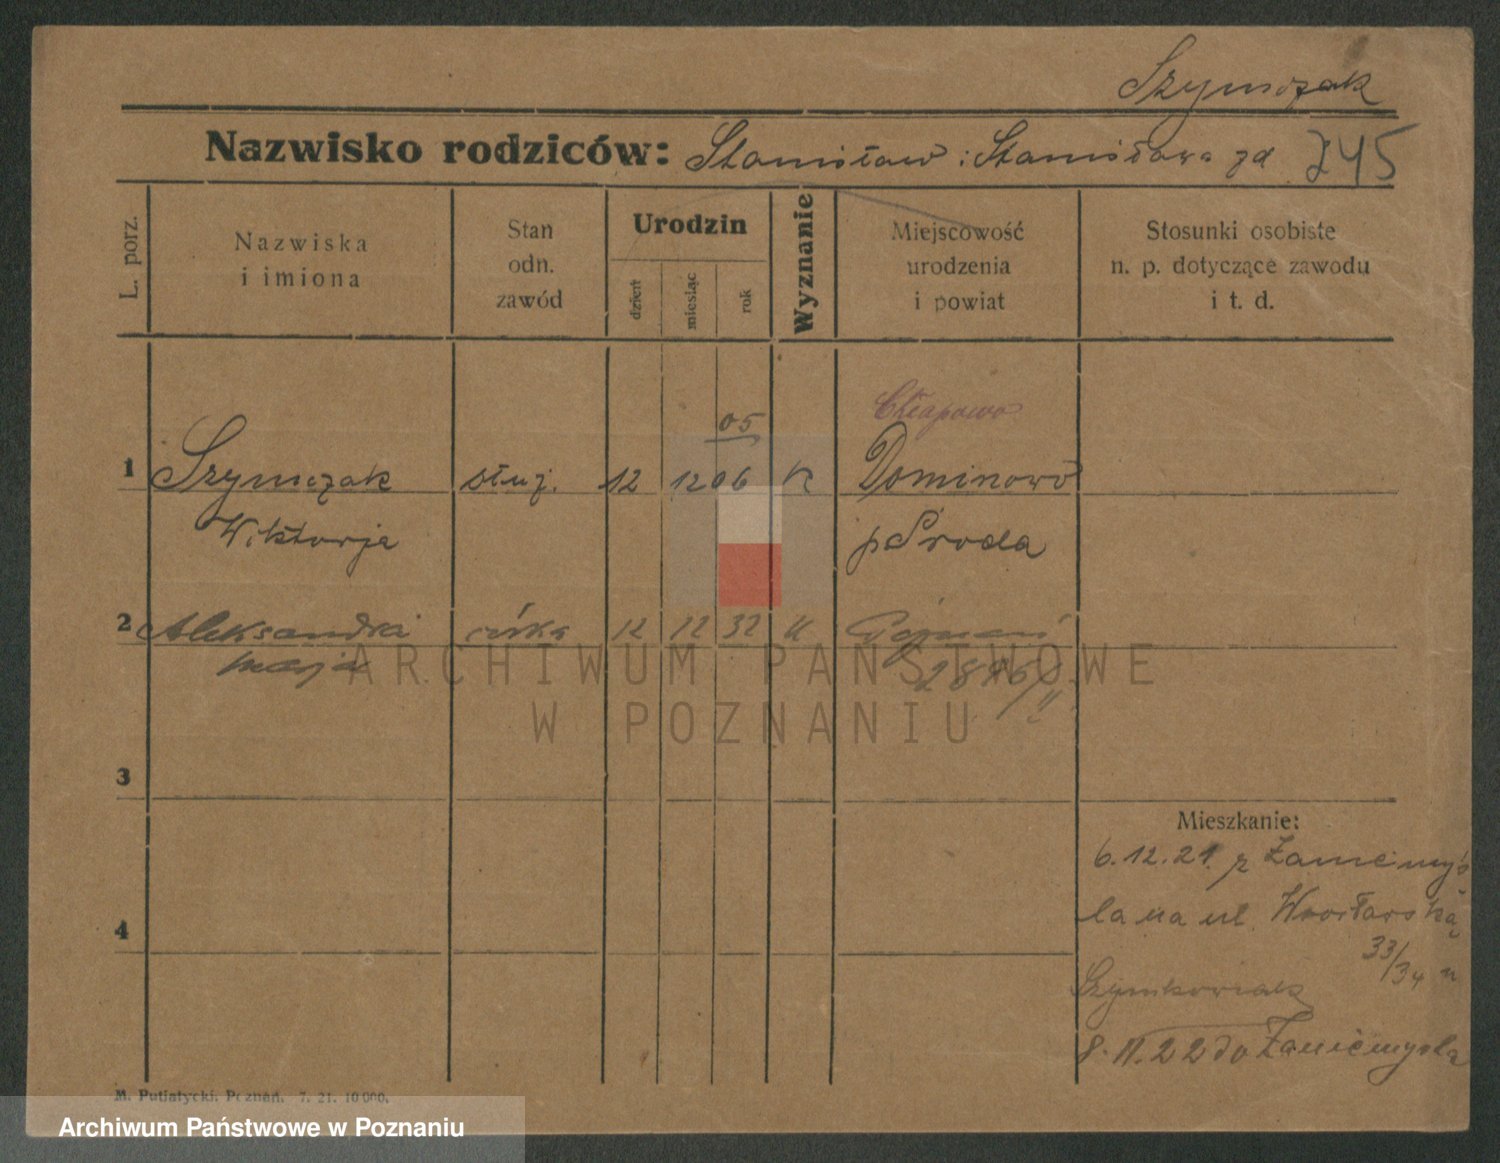 Szymczak
Nazwisko rodziców: Stanisław i Stanisława zd 745
L. porz.
Nazwiska i imiona
Stan odn. zawód
Urodzin
dzień
miesiąc
rok
Wyznanie
Miejscowość urodzenia i powiat
Stosunki osobiste n. p. dotyczące zawodu i t. d.
05 Chłapowo
1 Szymczak służ. 12 12 06 K Dominowo
Wiktorja p Środa
2 Aleksandra córka 12 12 32 K Poznań
Marja
ARCHIWUM PAŃSTWOWE
W POZNANIU
3
Mieszkanie:
6.12.21. z Zaniemyś
la na ul. Wrocławską
4
33/34 u
Szymkowiak
8.11.22 do Zaniemyśla
M. Putiatycki. Poznań. 7. 21. 10 000.
Archiwum Państwowe w Poznaniu